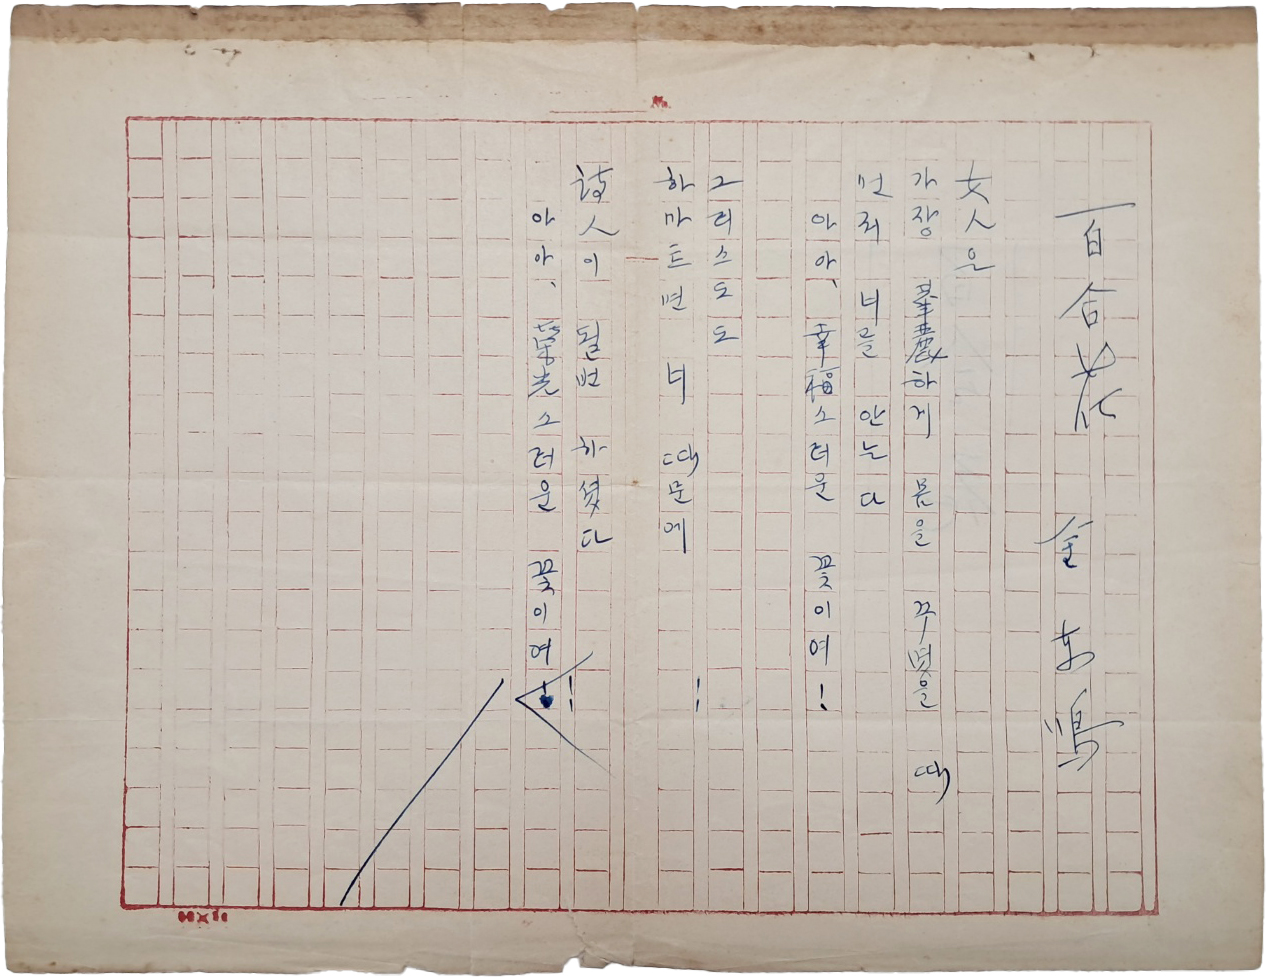 百合花 金東鳴
女人은
가장 華麗하게 몸을 꾸몃을 때
먼저 너를 안는다
아아、幸福스러운 꽃이여!
그리스도도
하마트면 너 때문에
詩人이 될번 하셨다
아아、榮光스러운 꽃이여!